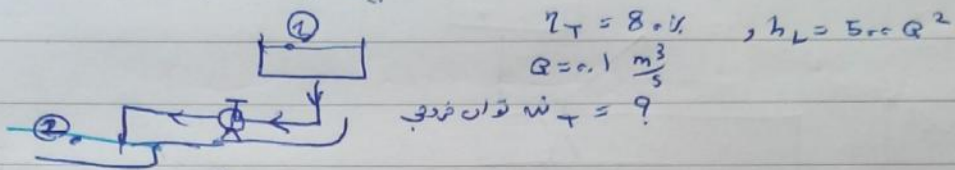 ① η_T = 80% , h_L = 500 Q²
Q = 0.1 m³/s
توان خروجی ẇ_T = ?
②